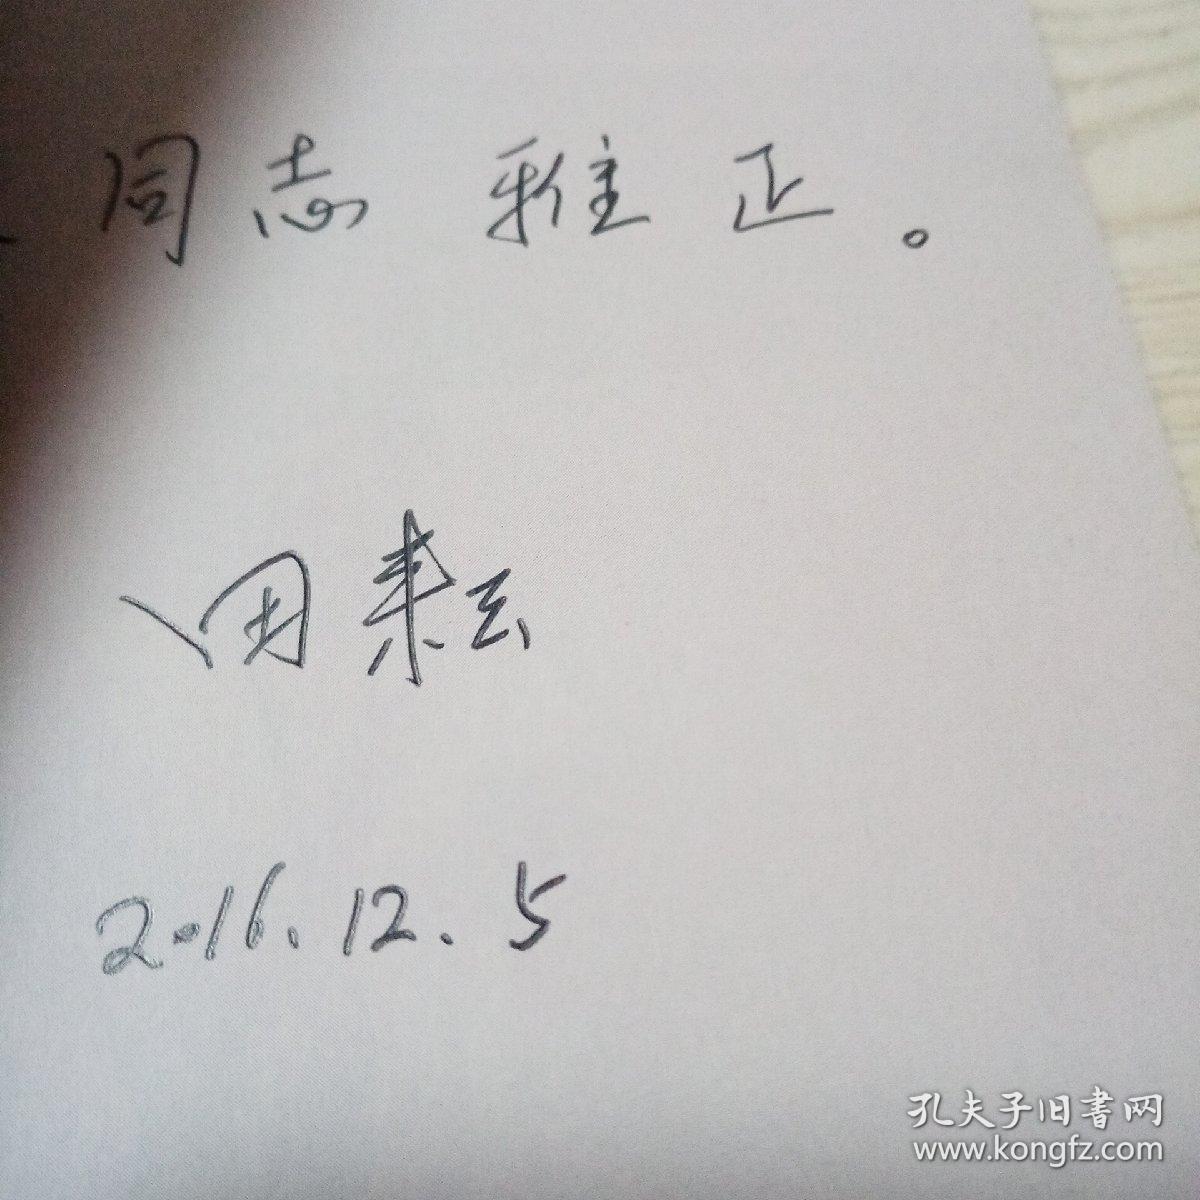 同志 雅正。
田耘
2016.12.5
孔夫子旧书网
www.kongfz.com